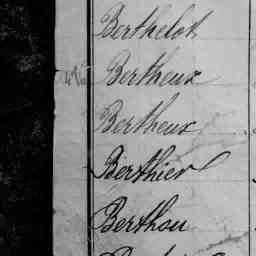 Berthelot
Bertheux
Bertheux
Berthier
Berthou